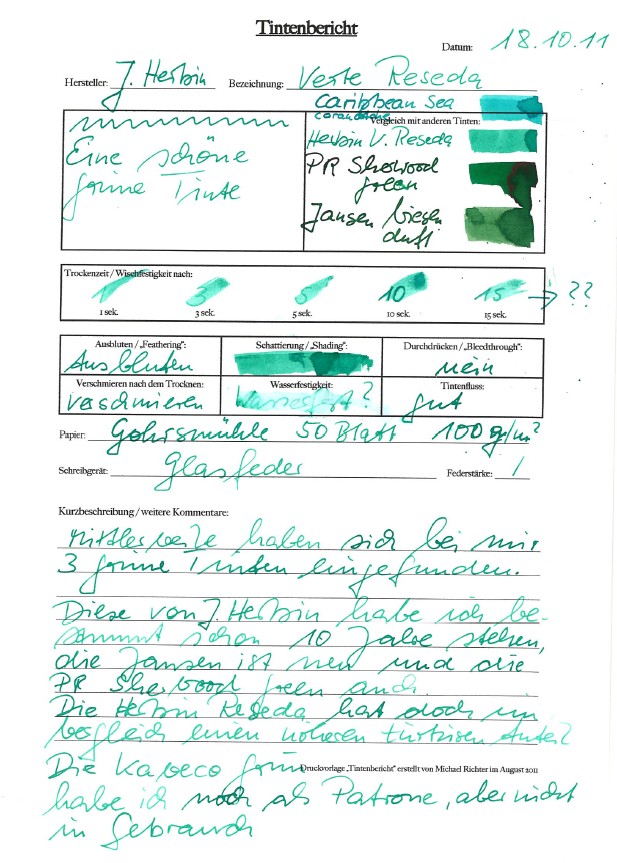 Tintenbericht
Datum: 18.10.11
Hersteller: J. Herbin Bezeichnung: Verte Reseda
Caribbean Sea
carandache
Vergleich mit anderen Tinten:
Eine schöne
grüne Tinte
Herbin V. Reseda
PR Sherwood
green
Jansen
duft
Trockenzeit / Wischfestigkeit nach:
1 3 5 10 15 → ??
1 sek. 3 sek. 5 sek. 10 sek. 15 sek.
Ausbluten / „Feathering“: Schattierung / „Shading“: Durchdrücken / „Bleedthrough“:
Ausbluten nein
Verschmieren nach dem Trocknen: Wasserfestigkeit: Tintenfluss:
verschmieren Wasserfest? gut
Papier: Gohrsmühle 50 Blatt 100 gr/m²
Schreibgerät: Glasfeder Federstärke: /
Kurzbeschreibung / weitere Kommentare:
Mittlerweile haben sich bei mir
3 grüne Tinten eingefunden.
Diese von J. Herbin habe ich be-
stimmt schon 10 Jahre stehen,
die Jansen ist neu und die
PR Sherwood green auch.
Die Herbin Reseda hat doch im
Vergleich einen höheren türkisen Anteil?
Die Kaweco grün
Druckvorlage „Tintenbericht“ erstellt von Michael Richter im August 2011
habe ich noch als Patrone, aber nicht
in Gebrauch